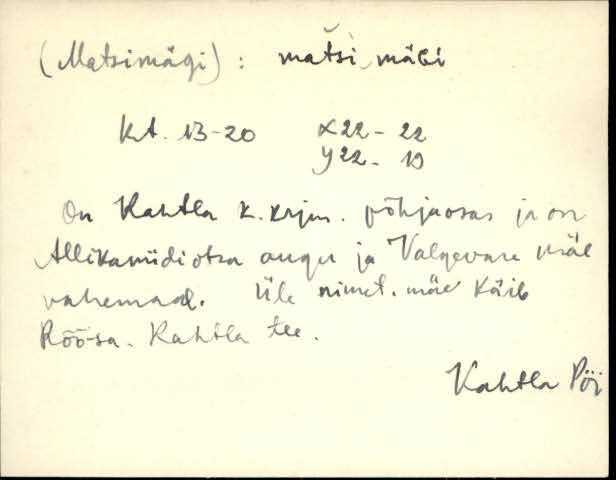 (Matsimägi) : matsi mägi
Kt. 13-20 X22 - 22
Y22 - 19
On Kahtla k. krjm. põhjaosas ja on
Allikaniidiotsa augu ja Valgevare mäe
vahemaal. Üle nimet. mäe käib
Röösa - Kahtla tee.
Kahtla Pöi